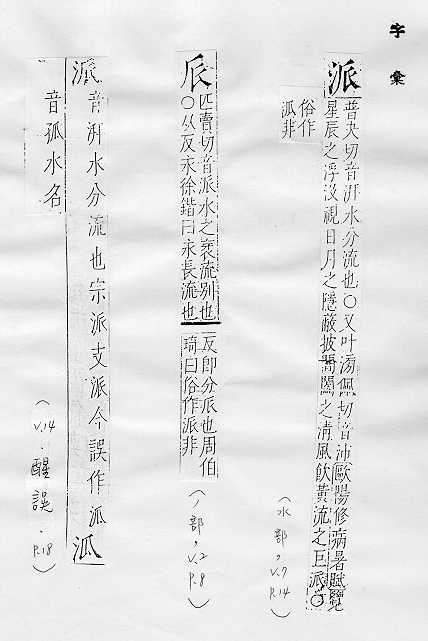 字彙
派
普夬切音湃水分流也○又叶滂佩切音沛歐陽修病暑賦覽
星辰之浮沒視日月之隱蔽披閶闔之清風飲黃流之巨派○
俗作
泒非
(水部,V.7 P.14)
𠂢
匹賣切音派水之衺流別也
○从反永徐鍇曰永長流也
反即分派也周伯
琦曰俗作派非
(丿部,V.2 P.8)
派 音湃水分流也宗派支派今誤作泒 泒
音孤水名
(V.14.醒誤.P.18)